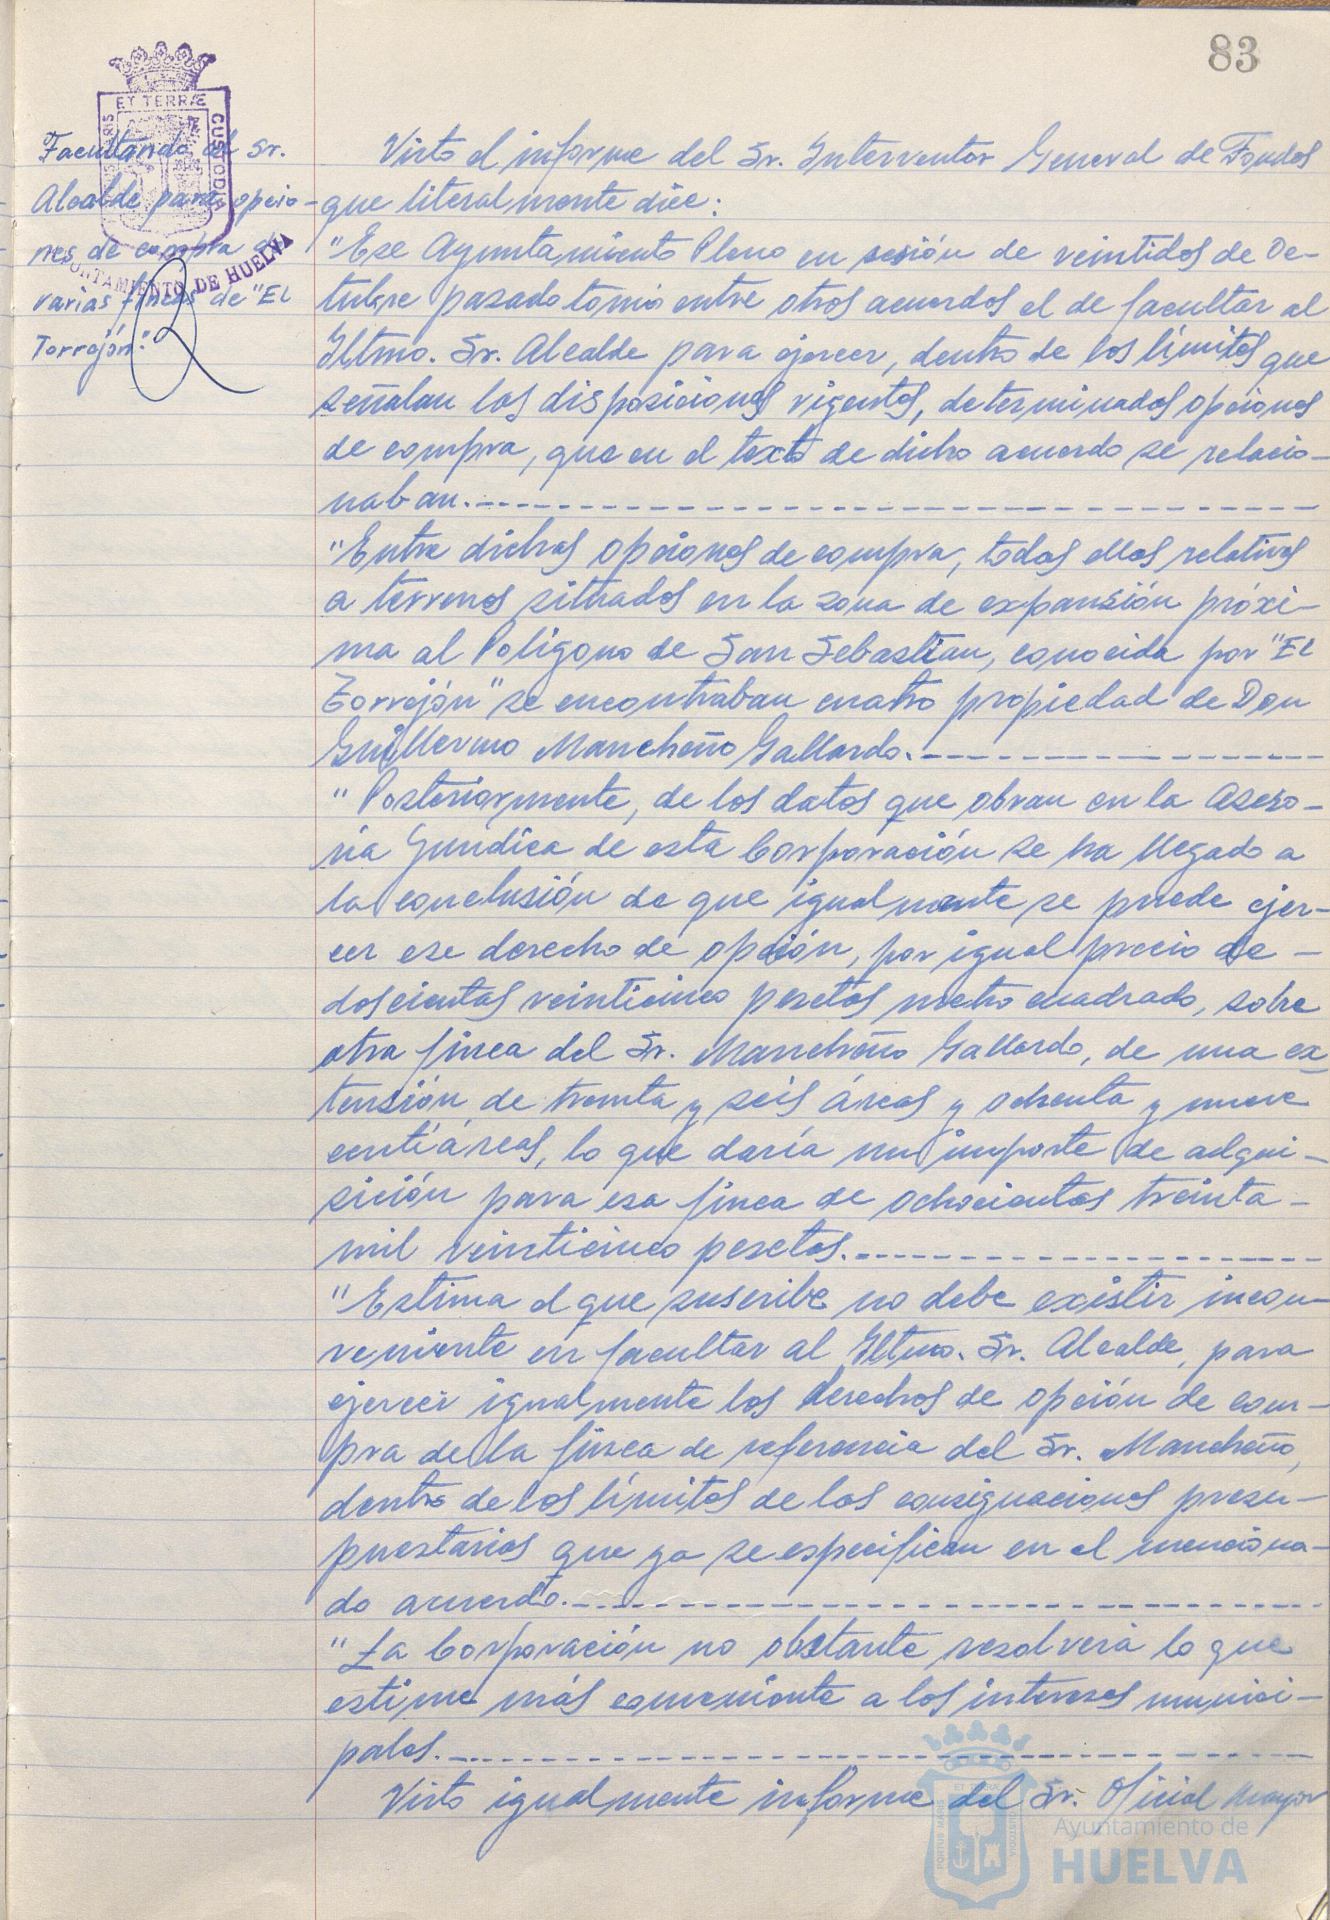 83
ET TERRÆ
CUSTODIA
AYUNTAMIENTO DE HUELVA
Facultando al Sr.
Alcalde para opcio-
nes de compra de
varias fincas de "El
Torrejón".
Visto el informe del Sr. Interventor General de Fondos
que literalmente dice:
"Ese Ayuntamiento Pleno en sesión de veintidos de Oc-
tubre pasado tomó entre otros acuerdos el de facultar al
Iltmo. Sr. Alcalde para ejercer, dentro de los límites que
señalan las disposiciones vigentes, determinadas opciones
de compra, que en el texto de dicho acuerdo se relacio-
naban.
"Entre dichas opciones de compra, todas ellas relativas
a terrenos situados en la zona de expansión próxi-
ma al Polígono de San Sebastian, conocida por "El
Torrejón" se encontraban cuatro propiedad de Don
Guillermo Mancheño Gallardo.
"Posteriormente, de los datos que obran en la Aseso-
ria Juridica de esta Corporación se ha llegado a
la conclusión de que igualmente se puede ejer-
cer ese derecho de opción, por igual precio de -
doscientas veinticinco pesetas metro cuadrado, sobre
otra finca del Sr. Mancheño Gallardo, de una ex
tensión de treinta y seis áreas y ochenta y nueve
centiáreas, lo que daría un importe de adqui-
sición para esa finca de ochocientas treinta -
mil veinticinco pesetas.
"Estima el que suscribe no debe existir incon-
veniente en facultar al Iltmo. Sr. Alcalde, para
ejercer igualmente los derechos de opción de com-
pra de la finca de referencia del Sr. Mancheño,
dentro de los límites de las consignaciones presu-
puestarias que ya se especifican en el menciona-
do acuerdo.
"La Corporación no obstante resolverá lo que
estime más conveniente a los intereses munici-
pales.
Visto igualmente informe del Sr. Oficial Mayor
ET TERRÆ
PORTUS MARIS
CUSTODIA
Ayuntamiento de
HUELVA